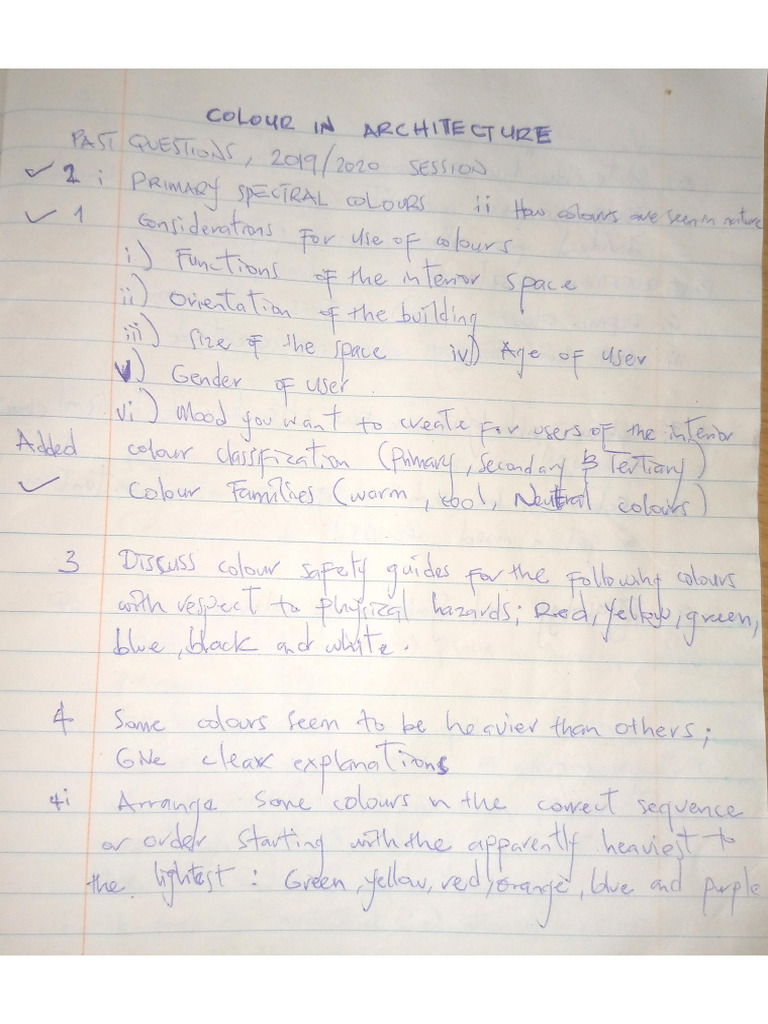 COLOUR IN ARCHITECTURE
PAST QUESTIONS, 2019/2020 SESSION
✓ 2 i PRIMARY SPECTRAL COLOURS ii How colours are seen in nature
✓ 1 Considerations for use of colours
i) Functions of the interior space
ii) Orientation of the building
iii) Size of the space iv) Age of user
v) Gender of user
vi) Mood you want to create for users of the interior
Added colour classification (Primary, Secondary & Tertiary)
✓ Colour Families (warm, cool, Neutral colours)
3 Discuss colour safety guides for the following colours
with respect to physical hazards; Red, yellow, green,
blue, black and white.
4 Some colours seem to be heavier than others;
Give clear explanations
4i Arrange some colours n the correct sequence
or order starting with the apparently heaviest to
the lightest: Green, yellow, red, orange, blue and purple